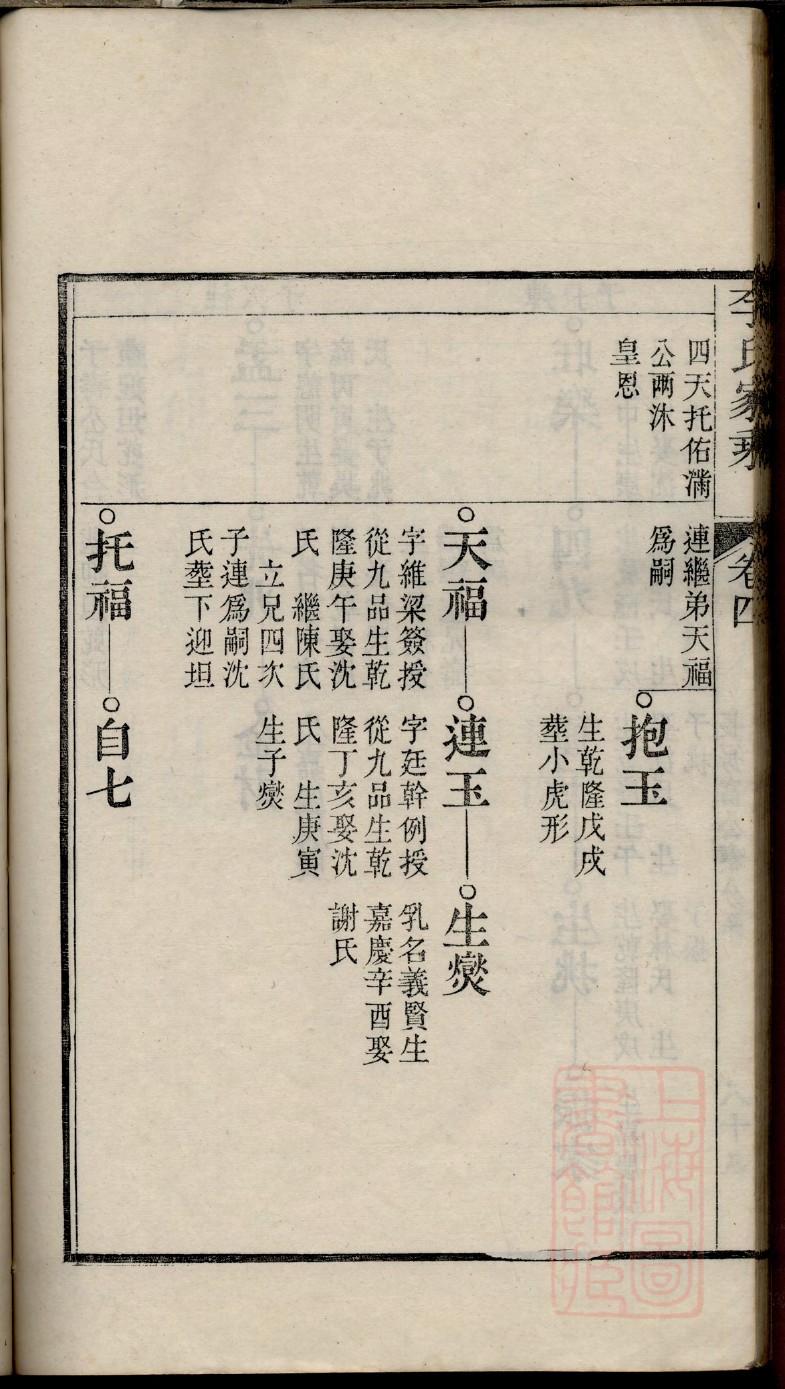 李氏家乘
卷四
四天托佑滿
公兩沐
皇恩
連繼弟天福
爲嗣
抱玉
生乾隆戊戌
塟小虎形
天福
字維梁簽授
從九品生乾
隆庚午娶沈
氏 繼陳氏
立兄四次
子連爲嗣沈
氏塟下迎坦
連玉
字廷幹例授
從九品生乾
隆丁亥娶沈
氏 生庚寅
生子爕
生爕
乳名義賢生
嘉慶辛酉娶
謝氏
托福
自七
上海圖
書館藏